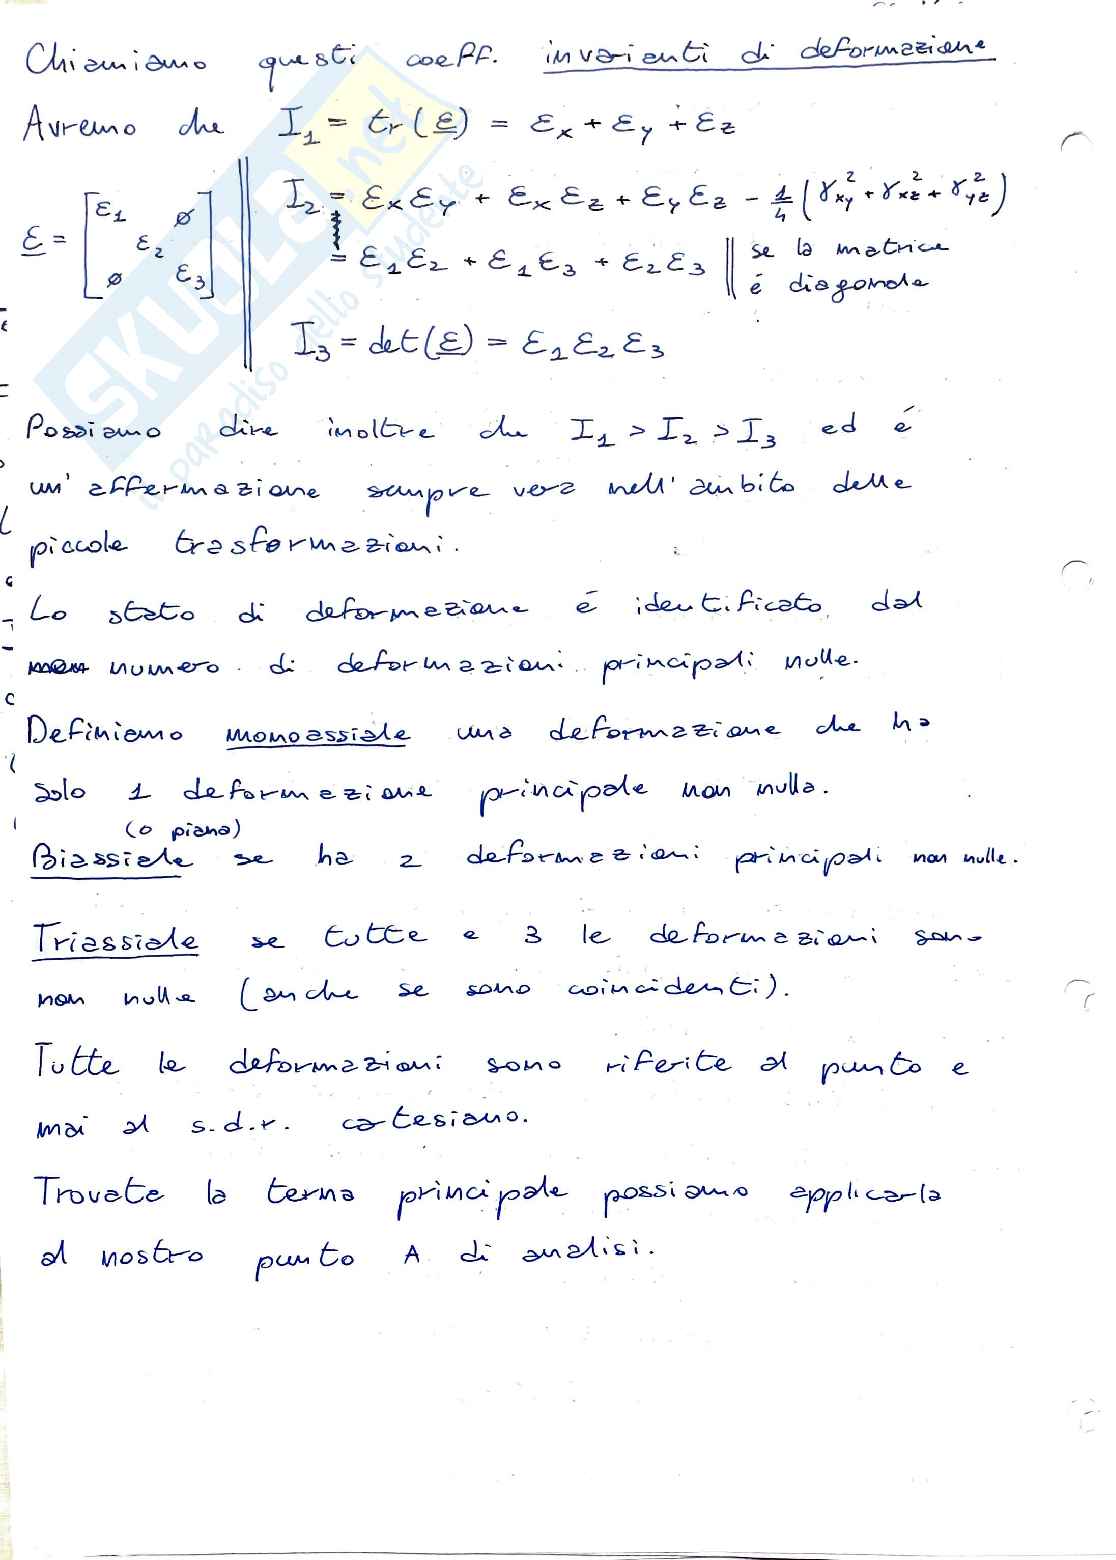 Chiamiamo questi coeff. invarianti di deformazione
Avremo che I₁ = tr(ε) = εx + εy + εz
ε = [ε₁ ε₂ ε₃ ∅ ∅]
I₂ = εxεy + εxεz + εyεz - 1/4 (γ²xy + γ²xz + γ²yz)
= ε₁ε₂ + ε₁ε₃ + ε₂ε₃ || se la matrice
é diagonale
I₃ = det(ε) = ε₁ε₂ε₃
Possiamo dire inoltre che I₁ > I₂ > I₃ ed é
un'affermazione sempre vera nell'ambito delle
piccole trasformazioni.
Lo stato di deformazione é identificato dal
numero di deformazioni principali nulle.
Definiamo monoassiale una deformazione che ha
solo 1 deformazione principale non nulla.
(o piana)
Biassiale se ha 2 deformazioni principali non nulle.
Triassiale se tutte e 3 le deformazioni sono
non nulle (anche se sono coincidenti).
Tutte le deformazioni sono riferite al punto e
mai al s.d.r. cartesiano.
Trovata la terna principale possiamo applicarla
al nostro punto A di analisi.
SKUOLA.net
il paradiso dello studente